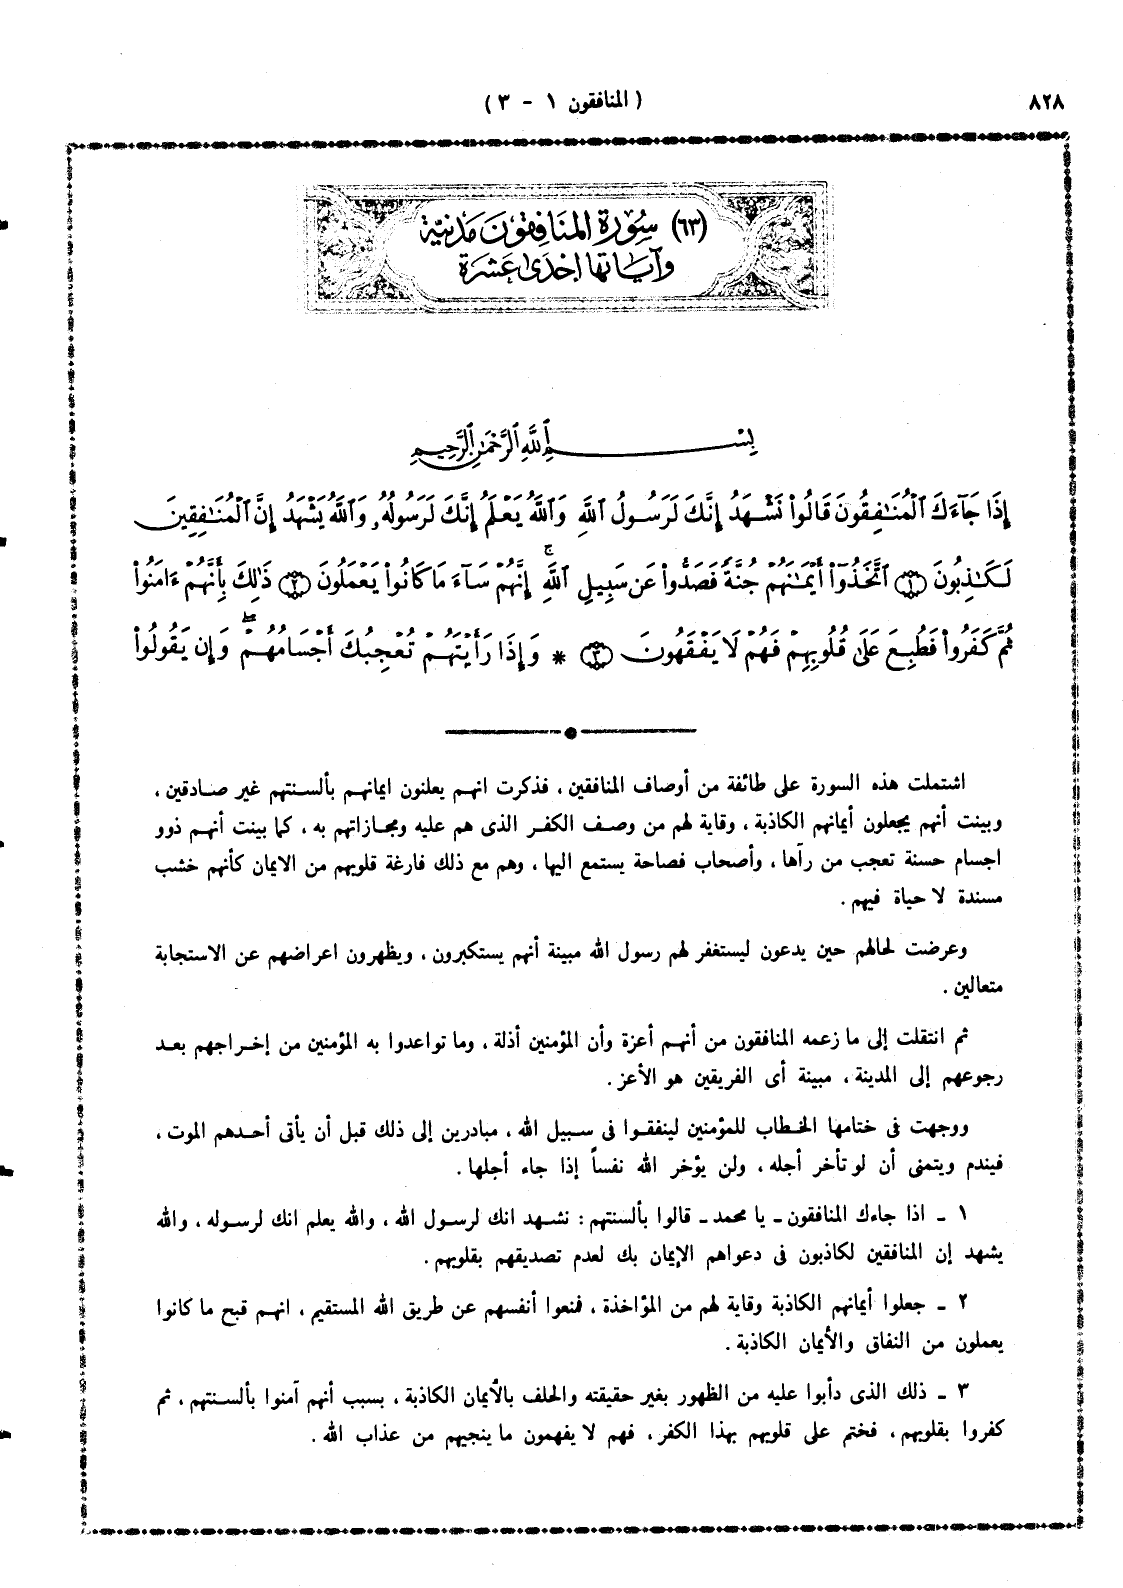 ٨٢٨
( المنافقون ١ - ٣ )
(٦٣) سُورَة المنَافِقونَ مَدَنيّة
وَآيَاتهَا إحْدَى عَشرَة
بِسْمِ ٱللَّهِ ٱلرَّحْمَٰنِ ٱلرَّحِيمِ
إِذَا جَآءَكَ ٱلْمُنَٰفِقُونَ قَالُوا۟ نَشْهَدُ إِنَّكَ لَرَسُولُ ٱللَّهِ وَٱللَّهُ يَعْلَمُ إِنَّكَ لَرَسُولُهُۥ وَٱللَّهُ يَشْهَدُ إِنَّ ٱلْمُنَٰفِقِينَ
لَكَٰذِبُونَ ١ ٱتَّخَذُوٓا۟ أَيْمَٰنَهُمْ جُنَّةً فَصَدُّوا۟ عَن سَبِيلِ ٱللَّهِ ۚ إِنَّهُمْ سَآءَ مَا كَانُوا۟ يَعْمَلُونَ ٢ ذَٰلِكَ بِأَنَّهُمْ ءَامَنُوا۟
ثُمَّ كَفَرُوا۟ فَطُبِعَ عَلَىٰ قُلُوبِهِمْ فَهُمْ لَا يَفْقَهُونَ ٣ * وَإِذَا رَأَيْتَهُمْ تُعْجِبُكَ أَجْسَامُهُمْ ۖ وَإِن يَقُولُوا۟
اشتملت هذه السورة على طائفة من أوصاف المنافقين ، فذكرت انهم يعلنون ايمانهم بألسنتهم غير صادقين ،
وبينت أنهم يجعلون أيمانهم الكاذبة ، وقاية لهم من وصف الكفر الذى هم عليه ومجازاتهم به ، كما بينت أنهم ذوو
اجسام حسنة تعجب من رآها ، وأصحاب فصاحة يستمع اليها ، وهم مع ذلك فارغة قلوبهم من الايمان كأنهم خشب
مسندة لا حياة فيهم .
وعرضت لحالهم حين يدعون ليستغفر لهم رسول الله مبينة أنهم يستكبرون ، ويظهرون اعراضهم عن الاستجابة
متعالين .
ثم انتقلت إلى ما زعمه المنافقون من أنهم أعزة وأن المؤمنين أذلة ، وما تواعدوا به المؤمنين من إخراجهم بعد
رجوعهم إلى المدينة ، مبينة أى الفريقين هو الأعز .
ووجهت فى ختامها الخطاب للمؤمنين لينفقوا فى سبيل الله ، مبادرين إلى ذلك قبل أن يأتى أحدهم الموت ،
فيندم ويتمنى أن لو تأخر أجله ، ولن يؤخر الله نفساً إذا جاء أجلها .
١ - اذا جاءك المنافقون - يا محمد - قالوا بألسنتهم : نشهد انك لرسول الله ، والله يعلم انك لرسوله ، والله
يشهد إن المنافقين لكاذبون فى دعواهم الإيمان بك لعدم تصديقهم بقلوبهم .
٢ - جعلوا أيمانهم الكاذبة وقاية لهم من المؤاخذة ، فمنعوا أنفسهم عن طريق الله المستقيم ، انهم قبح ما كانوا
يعملون من النفاق والأيمان الكاذبة .
٣ - ذلك الذى دأبوا عليه من الظهور بغير حقيقته والحلف بالأيمان الكاذبة ، بسبب أنهم آمنوا بألسنتهم ، ثم
كفروا بقلوبهم ، فختم على قلوبهم بهذا الكفر ، فهم لا يفهمون ما ينجيهم من عذاب الله .